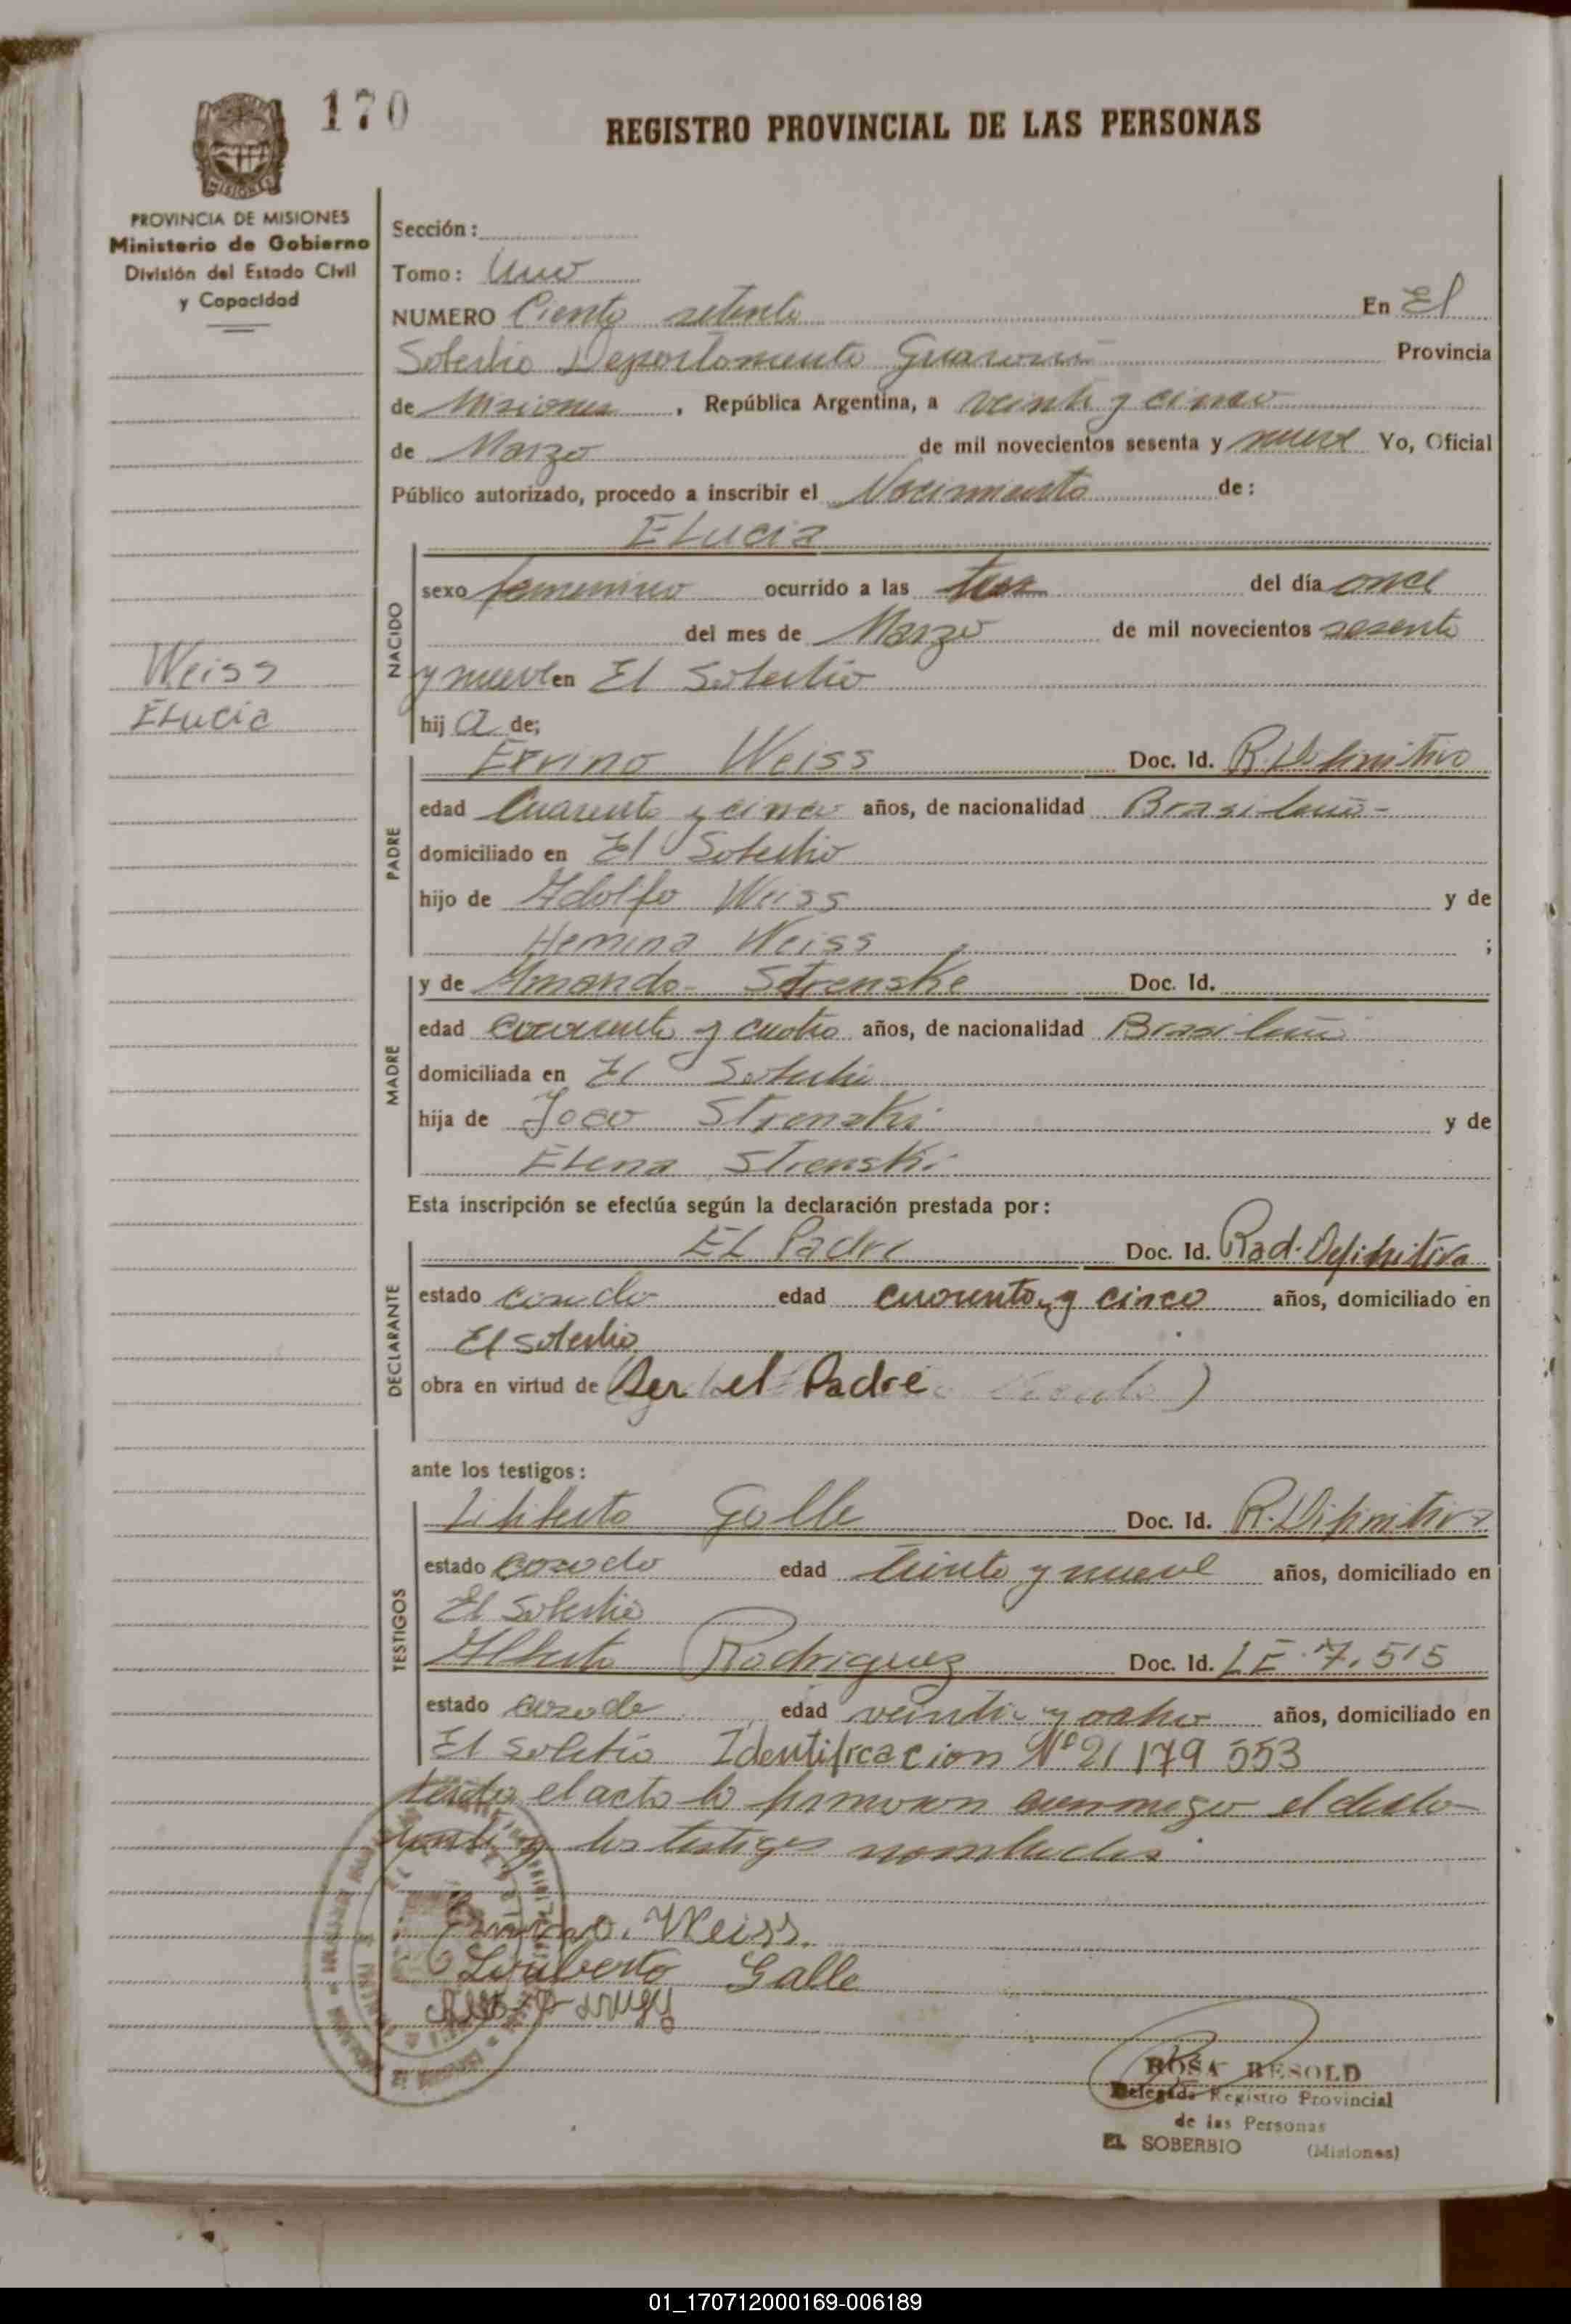 170
REGISTRO PROVINCIAL DE LAS PERSONAS
PROVINCIA DE MISIONES
Ministerio de Gobierno
División del Estado Civil
y Capacidad
Sección:
Tomo: Uno
NUMERO Ciento setenta En El
Soberbio Departamento Guarani Provincia
de Misiones, República Argentina, a veinte y cinco
de Marzo de mil novecientos sesenta y nueve Yo, Oficial
Público autorizado, procedo a inscribir el Nacimiento de:
ELucia
NACIDO
sexo femenino ocurrido a las tres del día once
del mes de Marzo de mil novecientos sesenta
y nueve en El Soberbio
hija de;
Weiss
ELucia
PADRE
Ervino Weiss Doc. Id. R. Definitivo
edad Cuarenta y cinco años, de nacionalidad Brasileño-
domiciliado en El Soberbio
hijo de Adolfo Weiss y de
Hemina Weiss ;
MADRE
y de Amanda Strenske Doc. Id.
edad cuarenta y cuatro años, de nacionalidad Brasileña
domiciliada en El Soberbio
hija de Joao Strenski y de
ELena Strenski
Esta inscripción se efectúa según la declaración prestada por:
DECLARANTE
EL Padre Doc. Id. Rad. Definitiva
estado casado edad cuarenta y cinco años, domiciliado en
El soberbio
obra en virtud de (Ser el Padre )
ante los testigos:
TESTIGOS
Galle Doc. Id. R. Difinitiva
estado casado edad treinta y nueve años, domiciliado en
El Soberbio
Alberto Rodriguez Doc. Id. LE 7.515
estado casado edad veinti y ocho años, domiciliado en
El Soberbio Identificacion Nº 21 179 553
leida el acta la firmaron conmigo el decla-
rante y los testigos nombrados
Ervino. Weiss.
Liriberto Galle
ROSA BESOLD
Delegada Registro Provincial
de las Personas
EL SOBERBIO (Misiones)
01_170712000169-006189